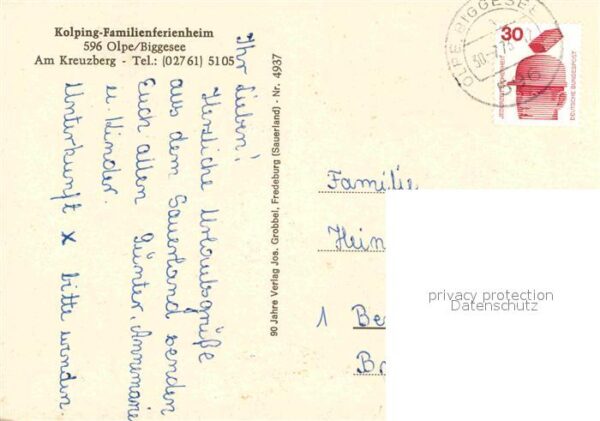 Kolping-Familienferienheim
596 Olpe/Biggesee
Am Kreuzberg - Tel.: (02761) 5105
Ihr Lieben!
Herzliche Urlaubsgrüße
aus dem Sauerland senden
Euch allen Günter, Annemarie
u. Kinder.
Unterkunft x bitte wenden.
90 Jahre Verlag Jos. Grobbel, Fredeburg (Sauerland) - Nr. 4937
OLPE, BIGGESEE
30
DEUTSCHE BUNDESPOST
Familie
Hein
1 Be
privacy protection
Datenschutz